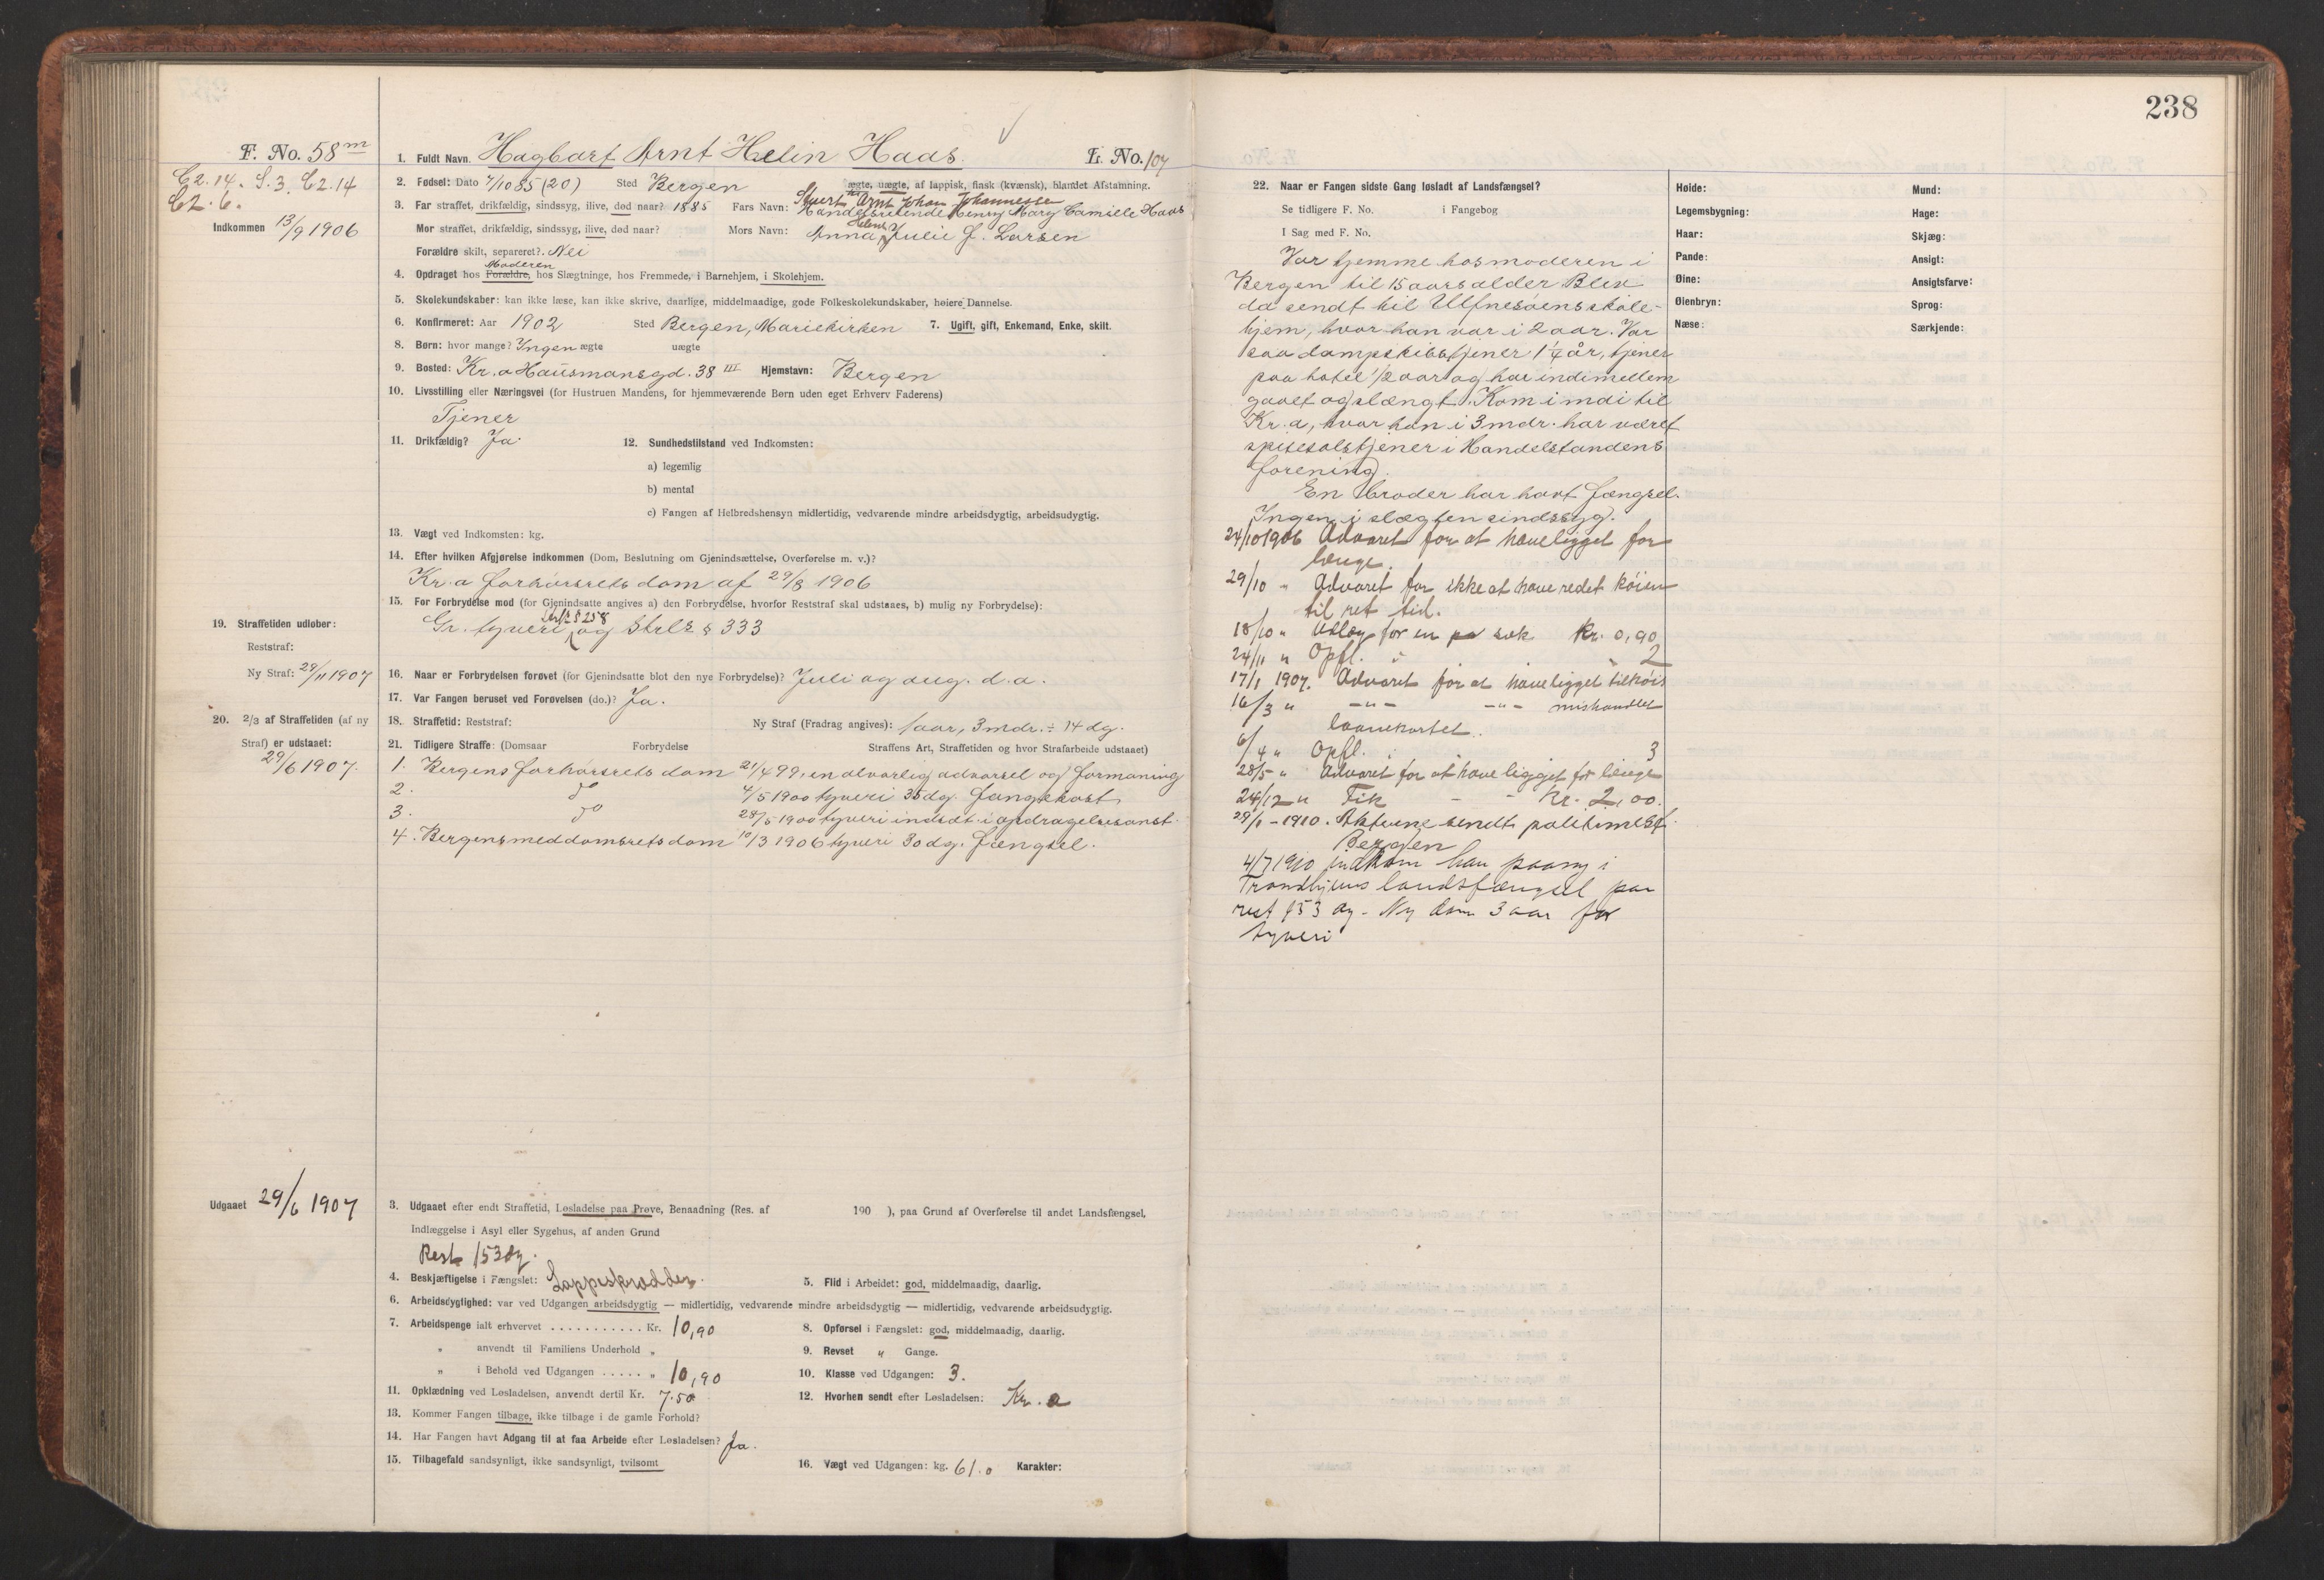 238
F. No. 58 m
C2.14. S.3. C2.14
C2.6.
Indkommen 13/9 1906
1. Fuldt Navn. Hagbart Arnt Helin Haas. L. No. 107
2. Fødsel: Dato 7/10 85 (20) Sted Bergen ægte, uægte, af lappisk, finsk (kvænsk), blandet Afstamning.
Arnt Johan Johannesse
3. Far straffet, drikfældig, sindssyg, ilive, død naar? 1885 Fars Navn: Handelsreisende Henry Mary Camille Haas
Helene
Mor straffet, drikfældig, sindssyg, ilive, død naar? Mors Navn: Anna Julie J. Larsen
Forældre skilt, separeret? Nei
Moderen
4. Opdraget hos Forældre, hos Slægtninge, hos Fremmede, i Barnehjem, i Skolehjem.
5. Skolekundskaber: kan ikke læse, kan ikke skrive, daarlige, middelmaadige, gode Folkeskolekundskaber, høiere Dannelse.
6. Konfirmeret: Aar 1902 Sted Bergen, Mariekirken 7. Ugift, gift, Enkemand, Enke, skilt.
8. Børn: hvor mange? Ingen ægte uægte
9. Bosted: Kr.a Hausmansgd. 38 III Hjemstavn: Bergen
10. Livsstilling eller Næringsvei (for Hustruen Mandens, for hjemmeværende Børn uden eget Erhverv Faderens)
Tjener
11. Drikfældig? Ja. 12. Sundhedstilstand ved Indkomsten:
a) legemlig
b) mental
c) Fangen af Helbredshensyn midlertidig, vedvarende mindre arbeidsdygtig, arbeidsudygtig.
13. Vægt ved Indkomsten: kg.
14. Efter hvilken Afgjørelse indkommen (Dom, Beslutning om Gjenindsættelse, Overførelse m. v.)?
Kr.a forhørsrets dom af 29/8 1906
15. For Forbrydelse mod (for Gjenindsatte angives a) den Forbrydelse, hvorfor Reststraf skal udstaaes, b) mulig ny Forbrydelse):
Strfl § 258
Gr. tyveri og Strlk § 333
19. Straffetiden udløber:
Reststraf:
Ny Straf: 29/11 1907
16. Naar er Forbrydelsen forøvet (for Gjenindsatte blot den nye Forbrydelse)? Juli og aug. d.a.
17. Var Fangen beruset ved Forøvelsen (do.)? Ja.
20. 2/3 af Straffetiden (af ny
Straf) er udstaaet:
29/6 1907.
18. Straffetid: Reststraf: Ny Straf (Fradrag angives): 1 aar, 3 mdr. ÷ 14 dg.
21. Tidligere Straffe: (Domsaar Forbrydelse Straffens Art, Straffetiden og hvor Strafarbeide udstaaet)
1. Bergens forhørsrets dom 21/4 99, en alvorlig advarsel og formaning
2. do 4/5 1900 tyveri 35 dg. fangekost
3. do 28/5 1900 tyveri indsat i opdragelsesanst.
4. Bergens meddomsrets dom 10/3 1906 tyveri 30 dg. fængsel.
Udgaaet 29/6 1907
3. Udgaaet efter endt Straffetid, Løsladelse paa Prøve, Benaadning (Res. af 190 ), paa Grund af Overførelse til andet Landsfængsel,
Indlæggelse i Asyl eller Sygehus, af anden Grund
Rest 153 dg.
4. Beskjæftigelse i Fængslet: Lappeskrædder. 5. Flid i Arbeidet: god, middelmaadig, daarlig.
6. Arbeidsdygtighed: var ved Udgangen arbeidsdygtig — midlertidig, vedvarende mindre arbeidsdygtig — midlertidig, vedvarende arbeidsudygtig.
7. Arbeidspenge ialt erhvervet ........... Kr. 10,90 8. Opførsel i Fængslet: god, middelmaadig, daarlig.
" anvendt til Familiens Underhold " 9. Revset " Gange.
" i Behold ved Udgangen ..... " 10,90 10. Klasse ved Udgangen: 3.
11. Opklædning ved Løsladelsen, anvendt dertil Kr. 7.50 12. Hvorhen sendt efter Løsladelsen: Kr.a
13. Kommer Fangen tilbage, ikke tilbage i de gamle Forhold?
14. Har Fangen havt Adgang til at faa Arbeide efter Løsladelsen? Ja.
15. Tilbagefald sandsynligt, ikke sandsynligt, tvilsomt 16. Vægt ved Udgangen: kg. 61.0 Karakter:
22. Naar er Fangen sidste Gang løsladt af Landsfængsel?
Se tidligere F. No. i Fangebog
I Sag med F. No.
Var hjemme hos moderen i
Bergen til 15 aars alder Blev
da sendt til Ulfnesøens skole-
hjem, hvor han var i 2 aar. Var
saa dampskibstjener 1 1/4 år, tjener
paa hotel 1/2 aar og har indimellem
gaaet og slængt. Kom i mai til
Kr.a, hvor han i 3 mdr. har været
spisesalstjener i Handelstandens
forening.
En broder har havt fængsel.
Ingen i slægten sindssyg.
24/10 1906 Advaret for at have ligget for
længe.
29/10 " Advaret for ikke at have redet køien
til ret tid.
18/10 " Udlæg for en sæk Kr. 0,90
24/11 " Opfl. i 2
17/1 1907. Advaret for at have ligget tilkøis
16/3 " -"- -"- mishandlet
laanekortet.
6/4 " Opfl. i 3
28/5 " Advaret for at have ligget for længe
24/12 " Fik - - Kr. 2,00.
28/1 - 1910. Akterne sendt politimest.
Bergen
4/7 1910 indkom han paany i
Trondhjems landsfængsel paa
rest 153 dg - Ny dom 3 aar for
tyveri
Høide:
Legemsbygning:
Haar:
Pande:
Øine:
Øienbryn:
Næse:
Mund:
Hage:
Skjæg:
Ansigt:
Ansigtsfarve:
Sprog:
Særkjende: